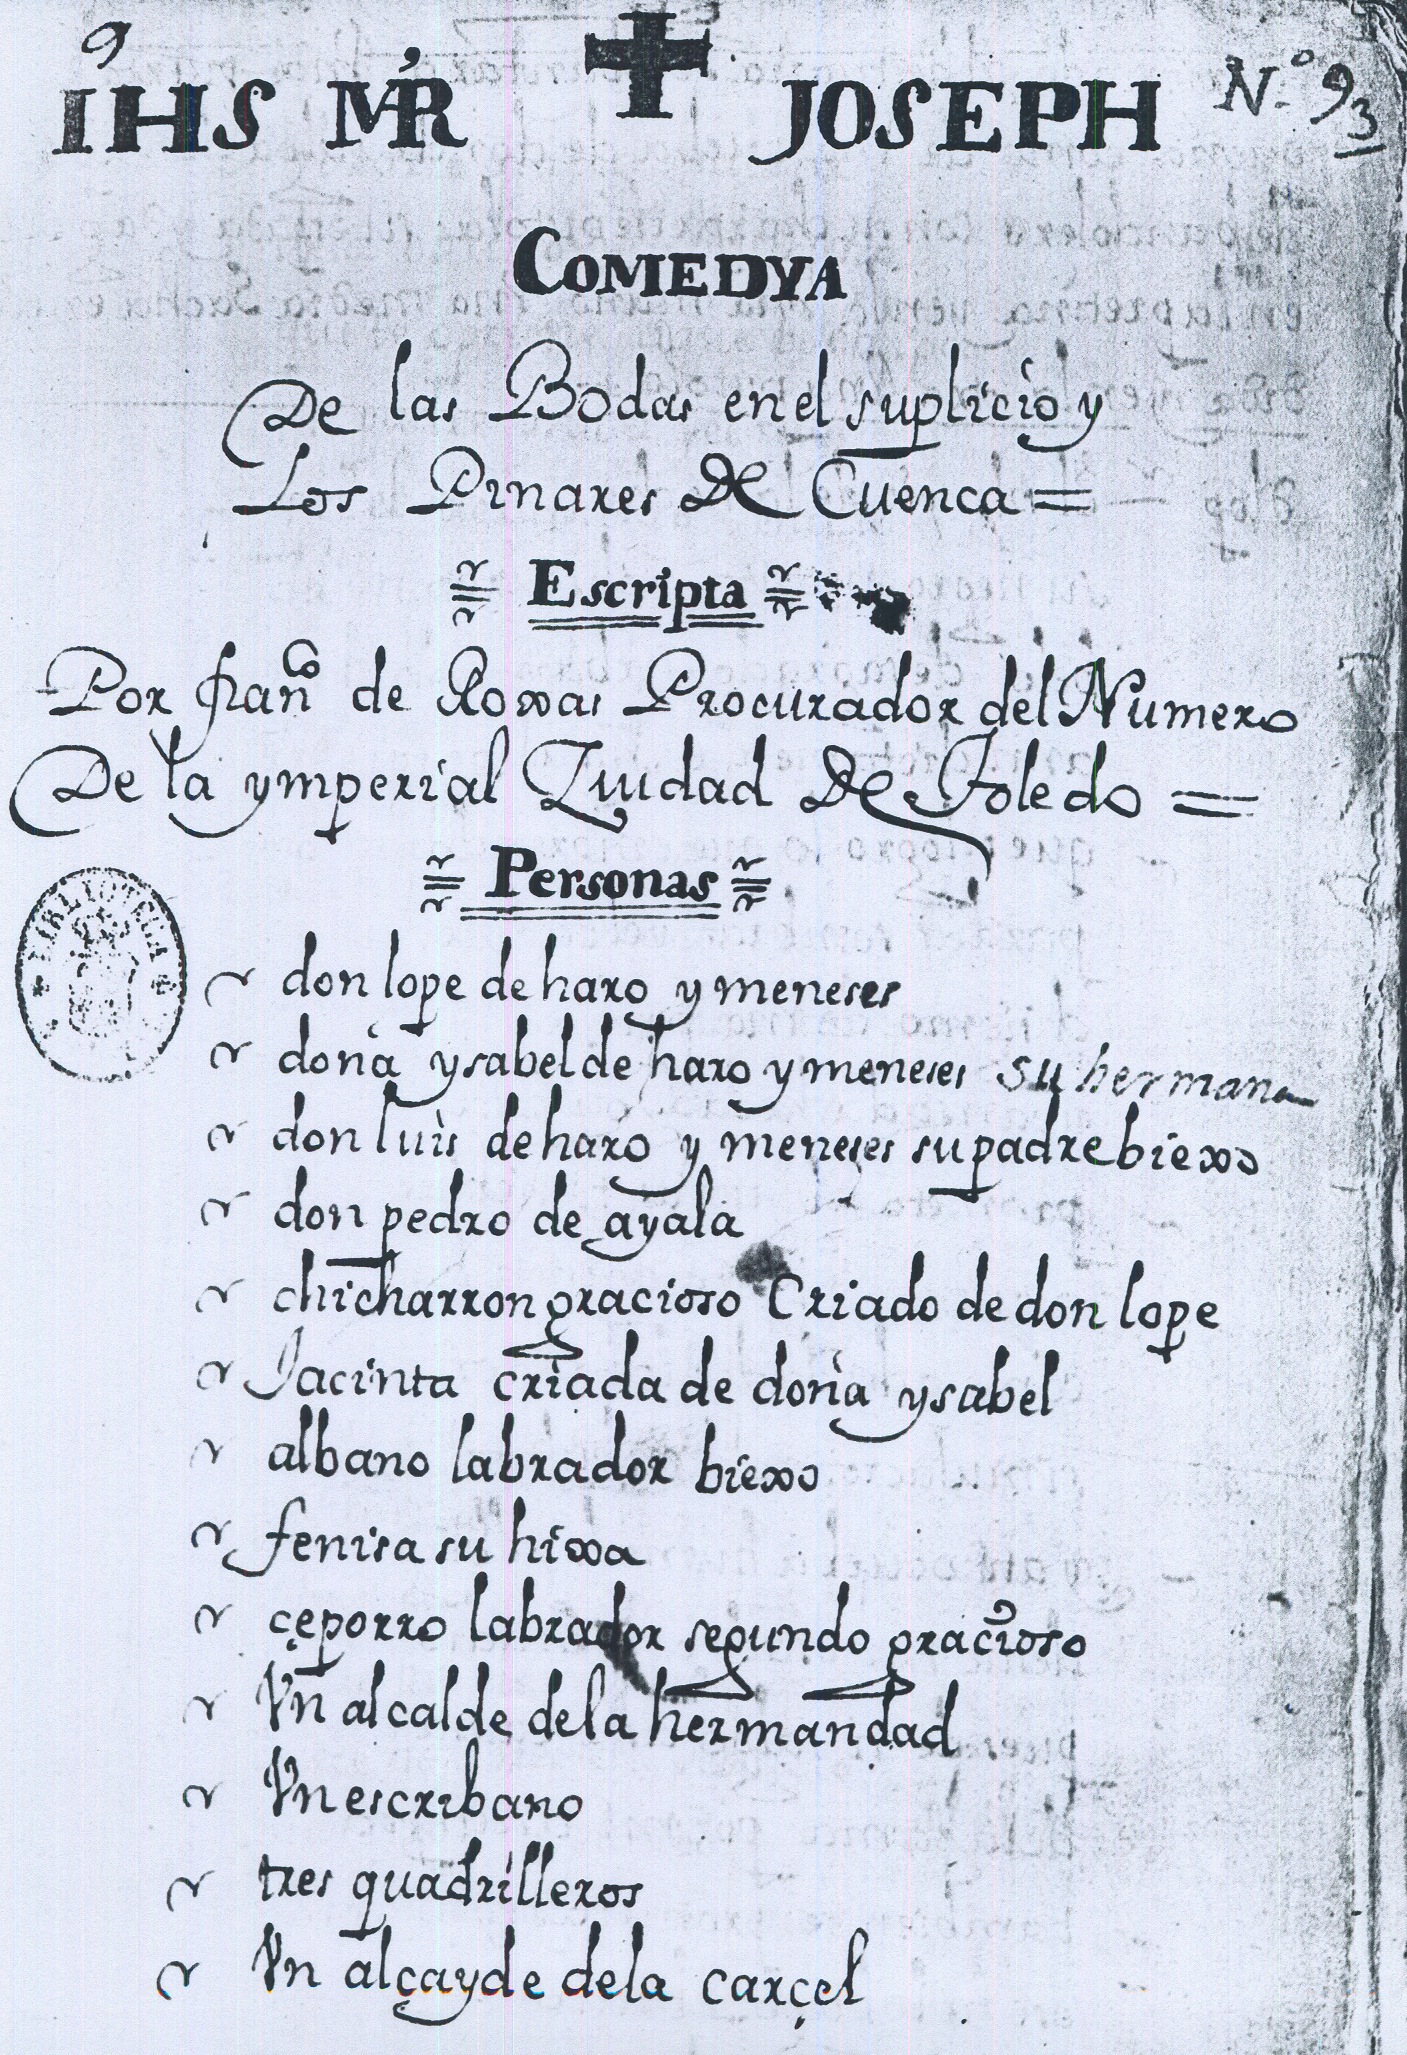 9
IHS MR JOSEPH N.º 93
COMEDYA
De las Bodas en el suplicio y
Los Pinares De Cuenca =
Escripta
Por franco de Roxas Procurador del Numero
De la ymperial Ziudad De Toledo =
Personas
BIBLIOTECA
don lope de haro y meneses
dona ysabel de haro y meneses su hermana
don luis de haro y meneses su padre biexo
don pedro de ayala
chicharron gracioso Criado de don lope
Jacinta criada de dona ysabel
albano labrador biexo
fenisa su hixa
çeporro labrador segundo gracioso
Vn alcalde de la hermandad
Vn escribano
tres quadrilleros
Vn alçayde de la carçel